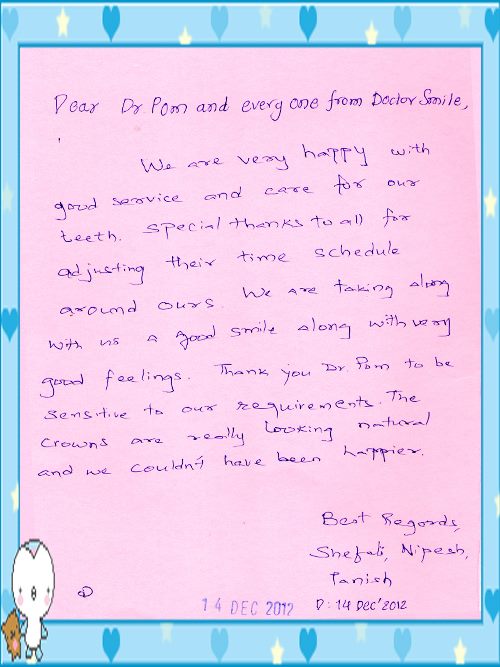 Dear Dr. Pom and every one from Doctor Smile,
We are very happy with
good service and care for our
teeth. Special thanks to all for
adjusting their time schedule
around ours. We are taking along
with us a good smile along with very
good feelings. Thank you Dr. Pom to be
sensitive to our requirements. The
crowns are really looking natural
and we couldn't have been happier.
Best Regards,
Shefali, Nipesh,
Tanish
14 DEC 2012 D: 14 Dec' 2012